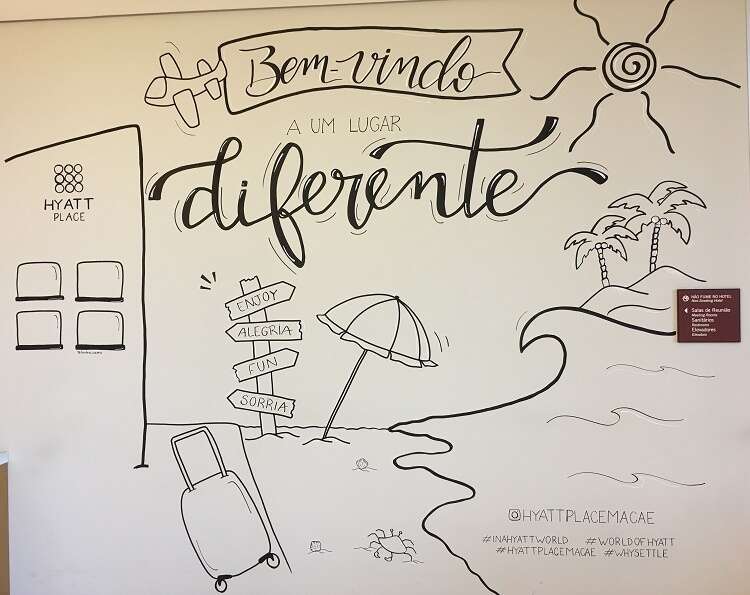 Bem-vindo
A UM LUGAR
diferente
HYATT
PLACE
ENJOY
ALEGRIA
FUN
SORRIA
NÃO FUME NO HOTEL
Non-Smoking Hotel
Salas de Reunião
Meeting Rooms
Sanitários
Restrooms
Elevadores
Elevators
@HYATTPLACEMACAE
#INAHYATTWORLD #WORLDOFHYATT
#HYATTPLACEMACAE #WHYSETTLE